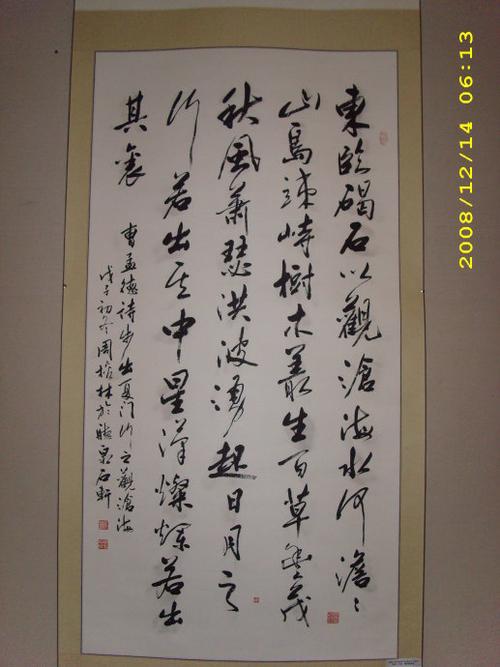 東臨碣石以觀滄海水何澹〻
山島竦峙樹木叢生百草豐茂
秋風蕭瑟洪波湧起日月之
行若出其中星漢燦爛若出
其裏
曹孟德詩步出夏门行之觀滄海
戊子初冬周林於泉石軒
2008/12/14 06:13